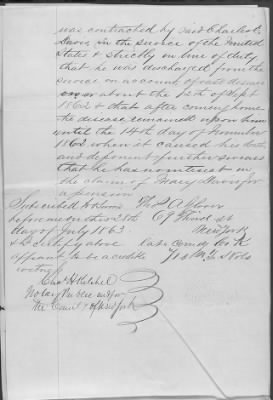 was contracted by said Charles E.
Davis in the service of the United
States & strictly in line of duty,
that he was discharged from the
service on account of said disease
on or about the 12th of Sept
1862 & that after coming home
the disease remained upon him
until the 14th day of November
1862 when it caused his death
and deponent further swears
that he has no interest in
the claim of Mary Davis for
a pension
Subscribed & sworn Thos A
before me on this 28th 69 Third st
day of July 1863 New York
& I certify above late Comdg Co K
affiant to be a credible N.Y. Vols
witness
Chas H
Notary Public in & for
the County of New York